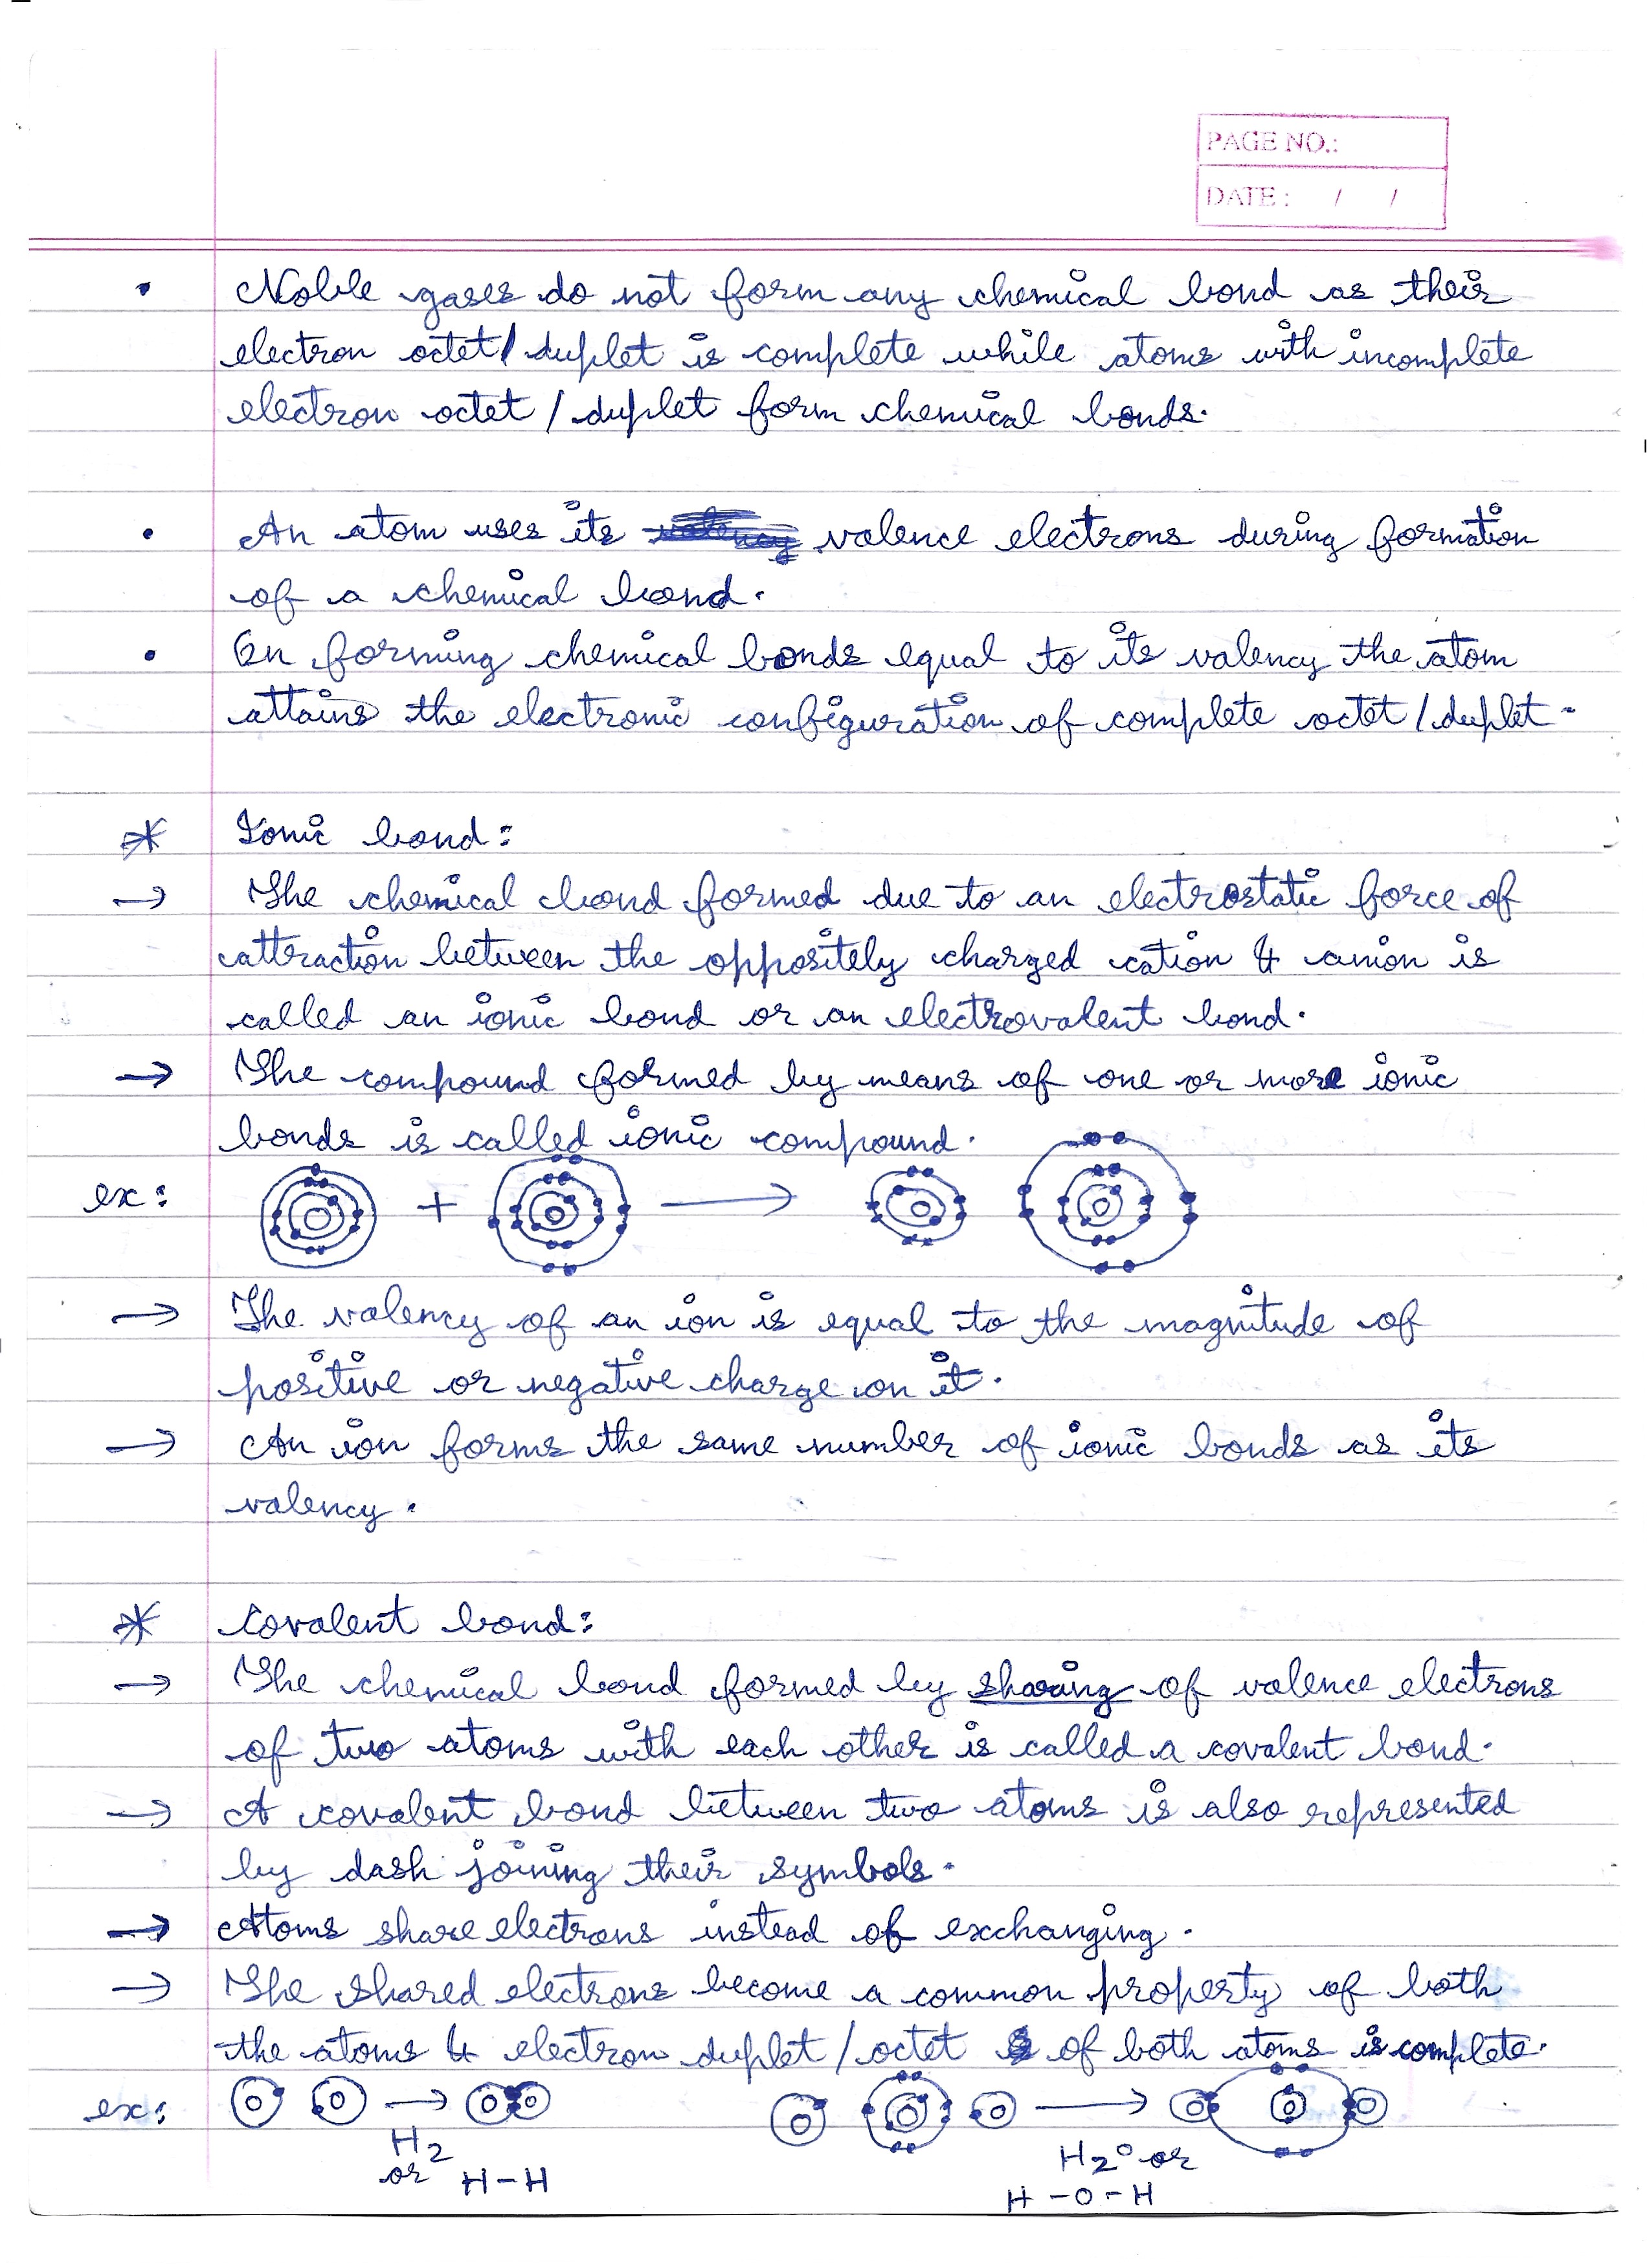 PAGE NO.:
DATE: / /
• Noble gases do not form any chemical bond as their
electron octet/duplet is complete while atoms with incomplete
electron octet/duplet form chemical bonds.
• An atom uses its valence electrons during formation
of a chemical bond.
• On forming chemical bonds equal to its valency the atom
attains the electronic configuration of complete octet/duplet.
* Ionic bond:
→ The chemical bond formed due to an electrostatic force of
attraction between the oppositely charged cation & anion is
called an ionic bond or an electrovalent bond.
→ The compound formed by means of one or more ionic
bonds is called ionic compound.
ex: + →
→ The valency of an ion is equal to the magnitude of
positive or negative charge on it.
→ An ion forms the same number of ionic bonds as its
valency.
* Covalent bond:
→ The chemical bond formed by sharing of valence electrons
of two atoms with each other is called a covalent bond.
→ A covalent bond between two atoms is also represented
by dash joining their symbols.
→ Atoms share electrons instead of exchanging.
→ The shared electrons become a common property of both
the atoms & electron duplet/octet of both atoms is complete.
ex: → →
H2 H2O or
or H-H
H-O-H